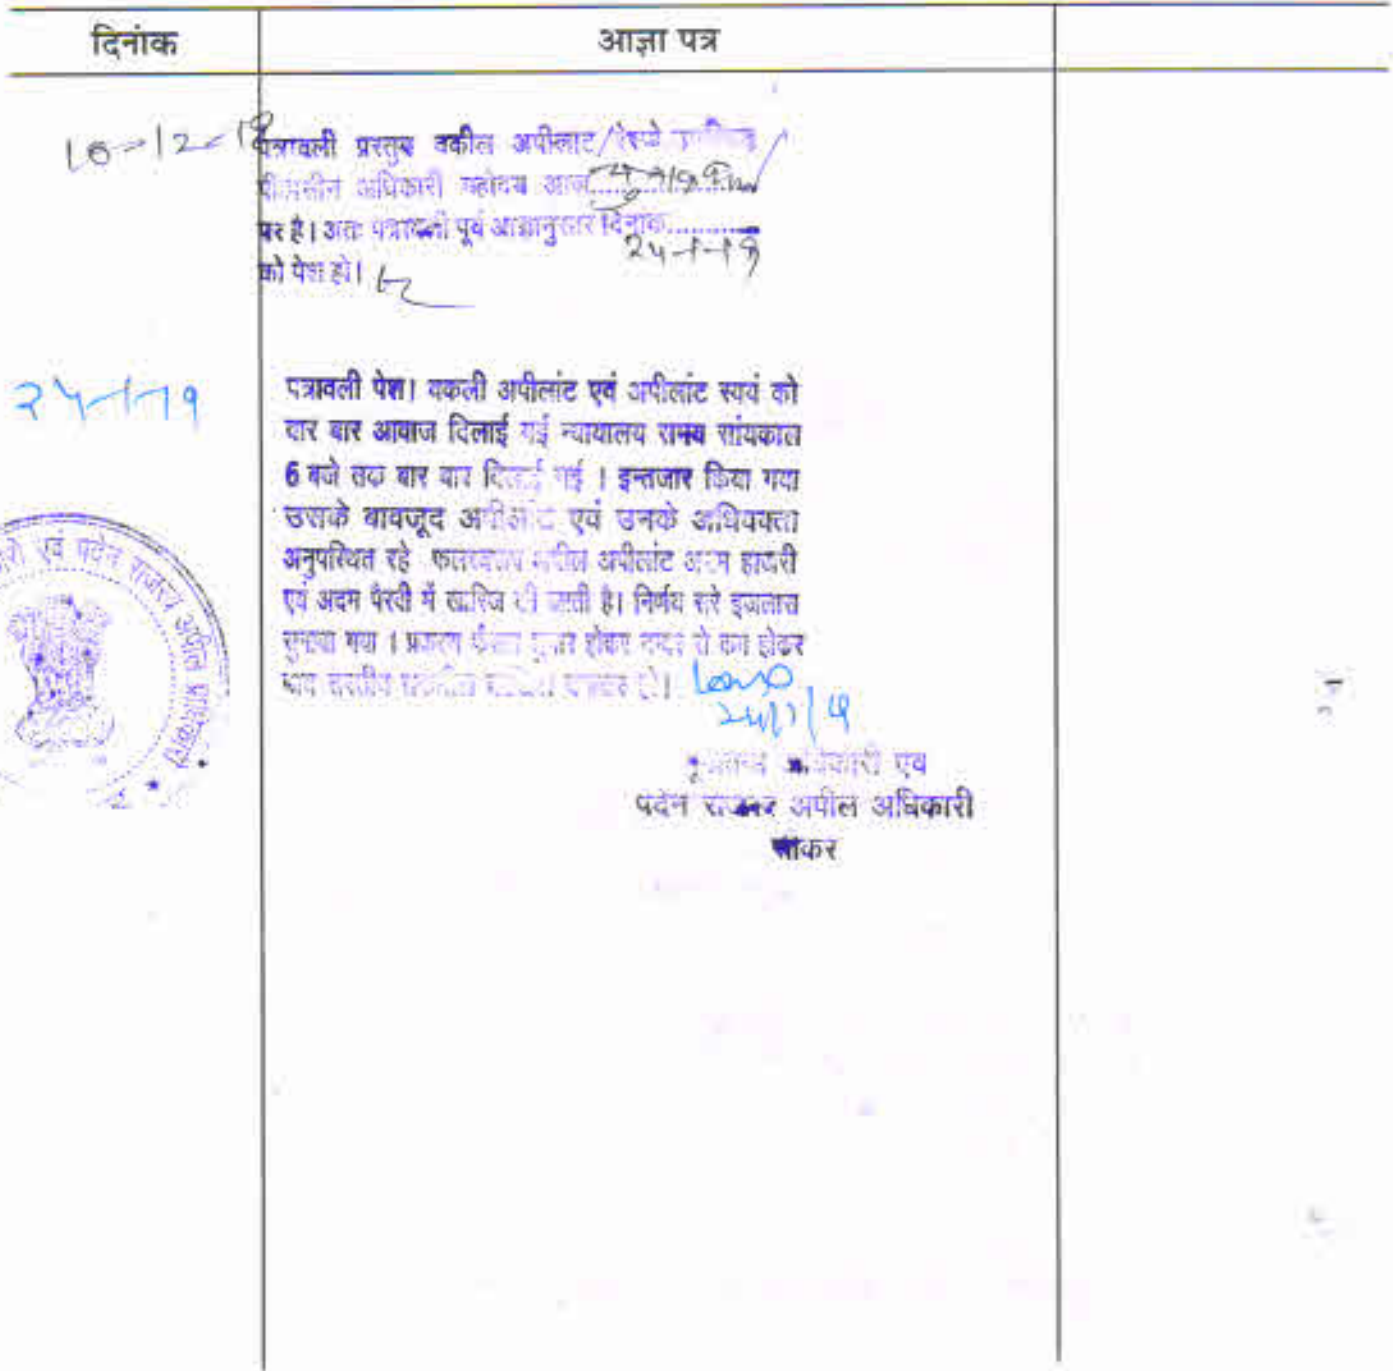 दिनांक
आज्ञा पत्र
10-12-18
पत्रावली प्रस्तुत वकील अपीलांट/रेस्पो
पीठासीन अधिकारी महोदय आज
पर है। अतः पत्रावली पूर्व आज्ञानुसार दिनांक..........
24-1-19
को पेश हो।
24-1-19
पत्रावली पेश। वकली अपीलांट एवं अपीलांट स्वयं को
बार बार आवाज दिलाई गई न्यायालय समय सांयकाल
6 बजे तक बार बार दिलाई गई । इन्तजार किया गया
उसके बावजूद अपीलांट एवं उनके अधिवक्ता
अनुपस्थित रहे फलस्वरूप अपील अपीलांट अदम हाजरी
एवं अदम पैरवी में खारिज की जाती है। निर्णय सरे इजलास
सुनाया गया । प्रकरण फैसल शुमार होकर नम्बर से कम होकर
बाद हो।
24/1/19
अधिकारी एवं
पदेन राजस्व अपील अधिकारी
सीकर
एवं पदेन राजस्व अपील प्राधिकारी